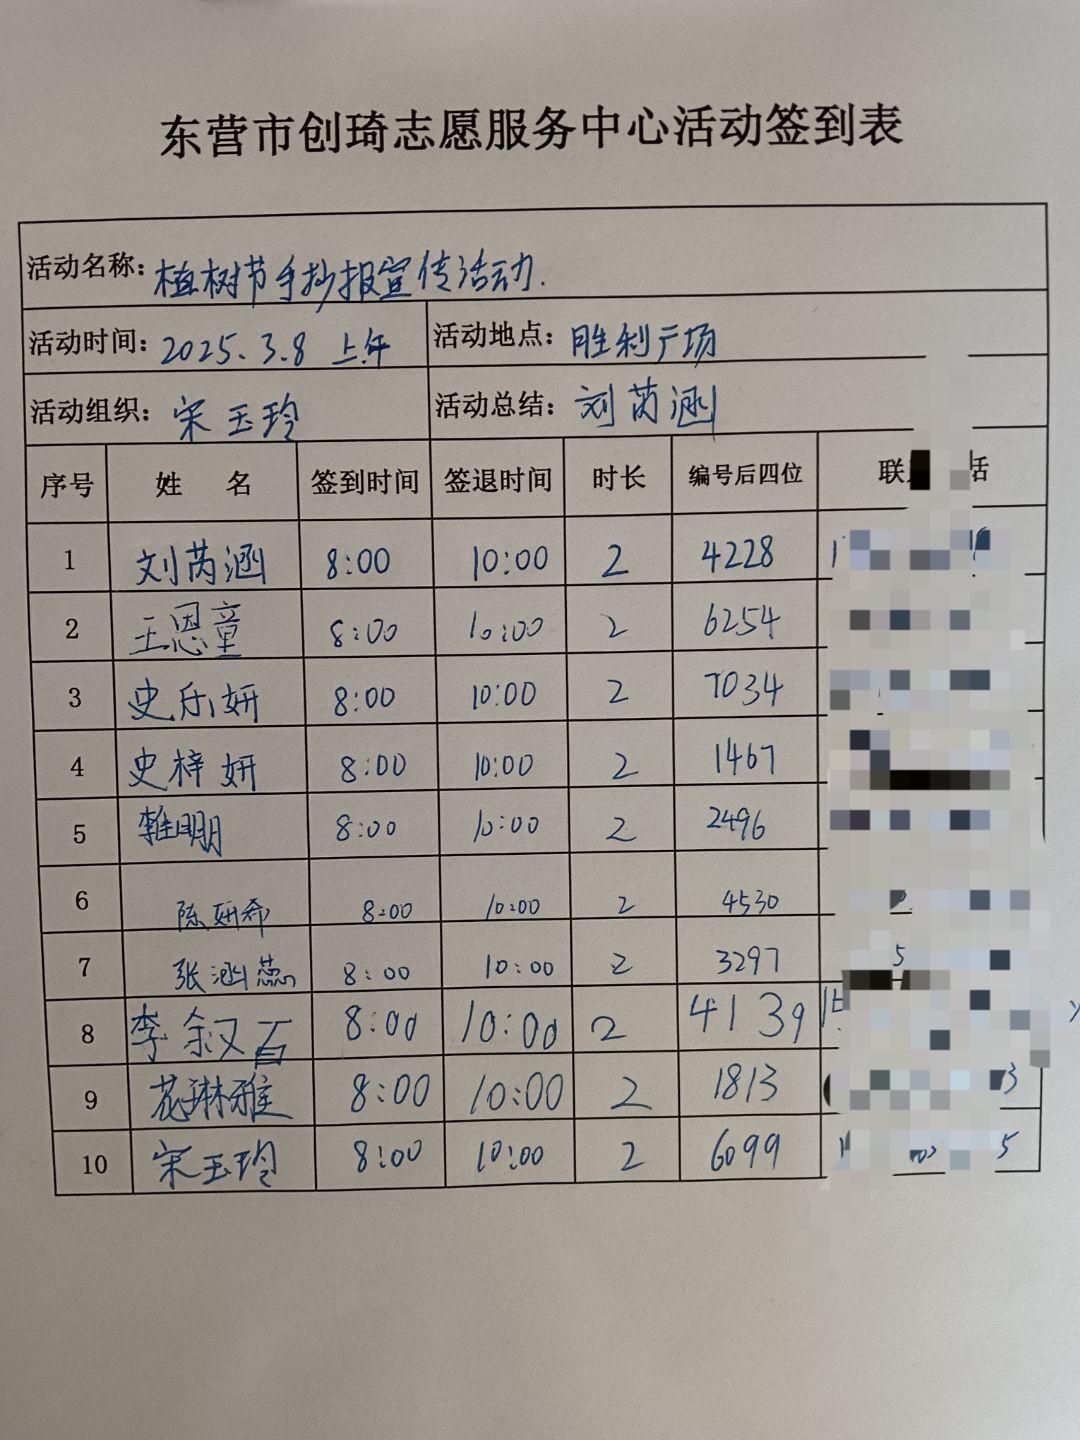 东营市创琦志愿服务中心活动签到表
活动名称：植树节手抄报宣传活动.
活动时间：2025.3.8 上午 活动地点：胜利广场
活动组织：宋玉玲 活动总结：刘芮涵
序号 姓 名 签到时间 签退时间 时长 编号后四位 联 话
1 刘芮涵 8:00 10:00 2 4228
2 王恩童 8:00 10:00 2 6254
3 史乐妍 8:00 10:00 2 7034
4 史梓妍 8:00 10:00 2 1467
5 8:00 10:00 2 2496
6 陈妍希 8:00 10:00 2 4530
7 张涵蕊 8:00 10:00 2 3297 5
8 李叙 8:00 10:00 2 4139
9 花琳雅 8:00 10:00 2 1813 3
10 宋玉玲 8:00 10:00 2 6099 5